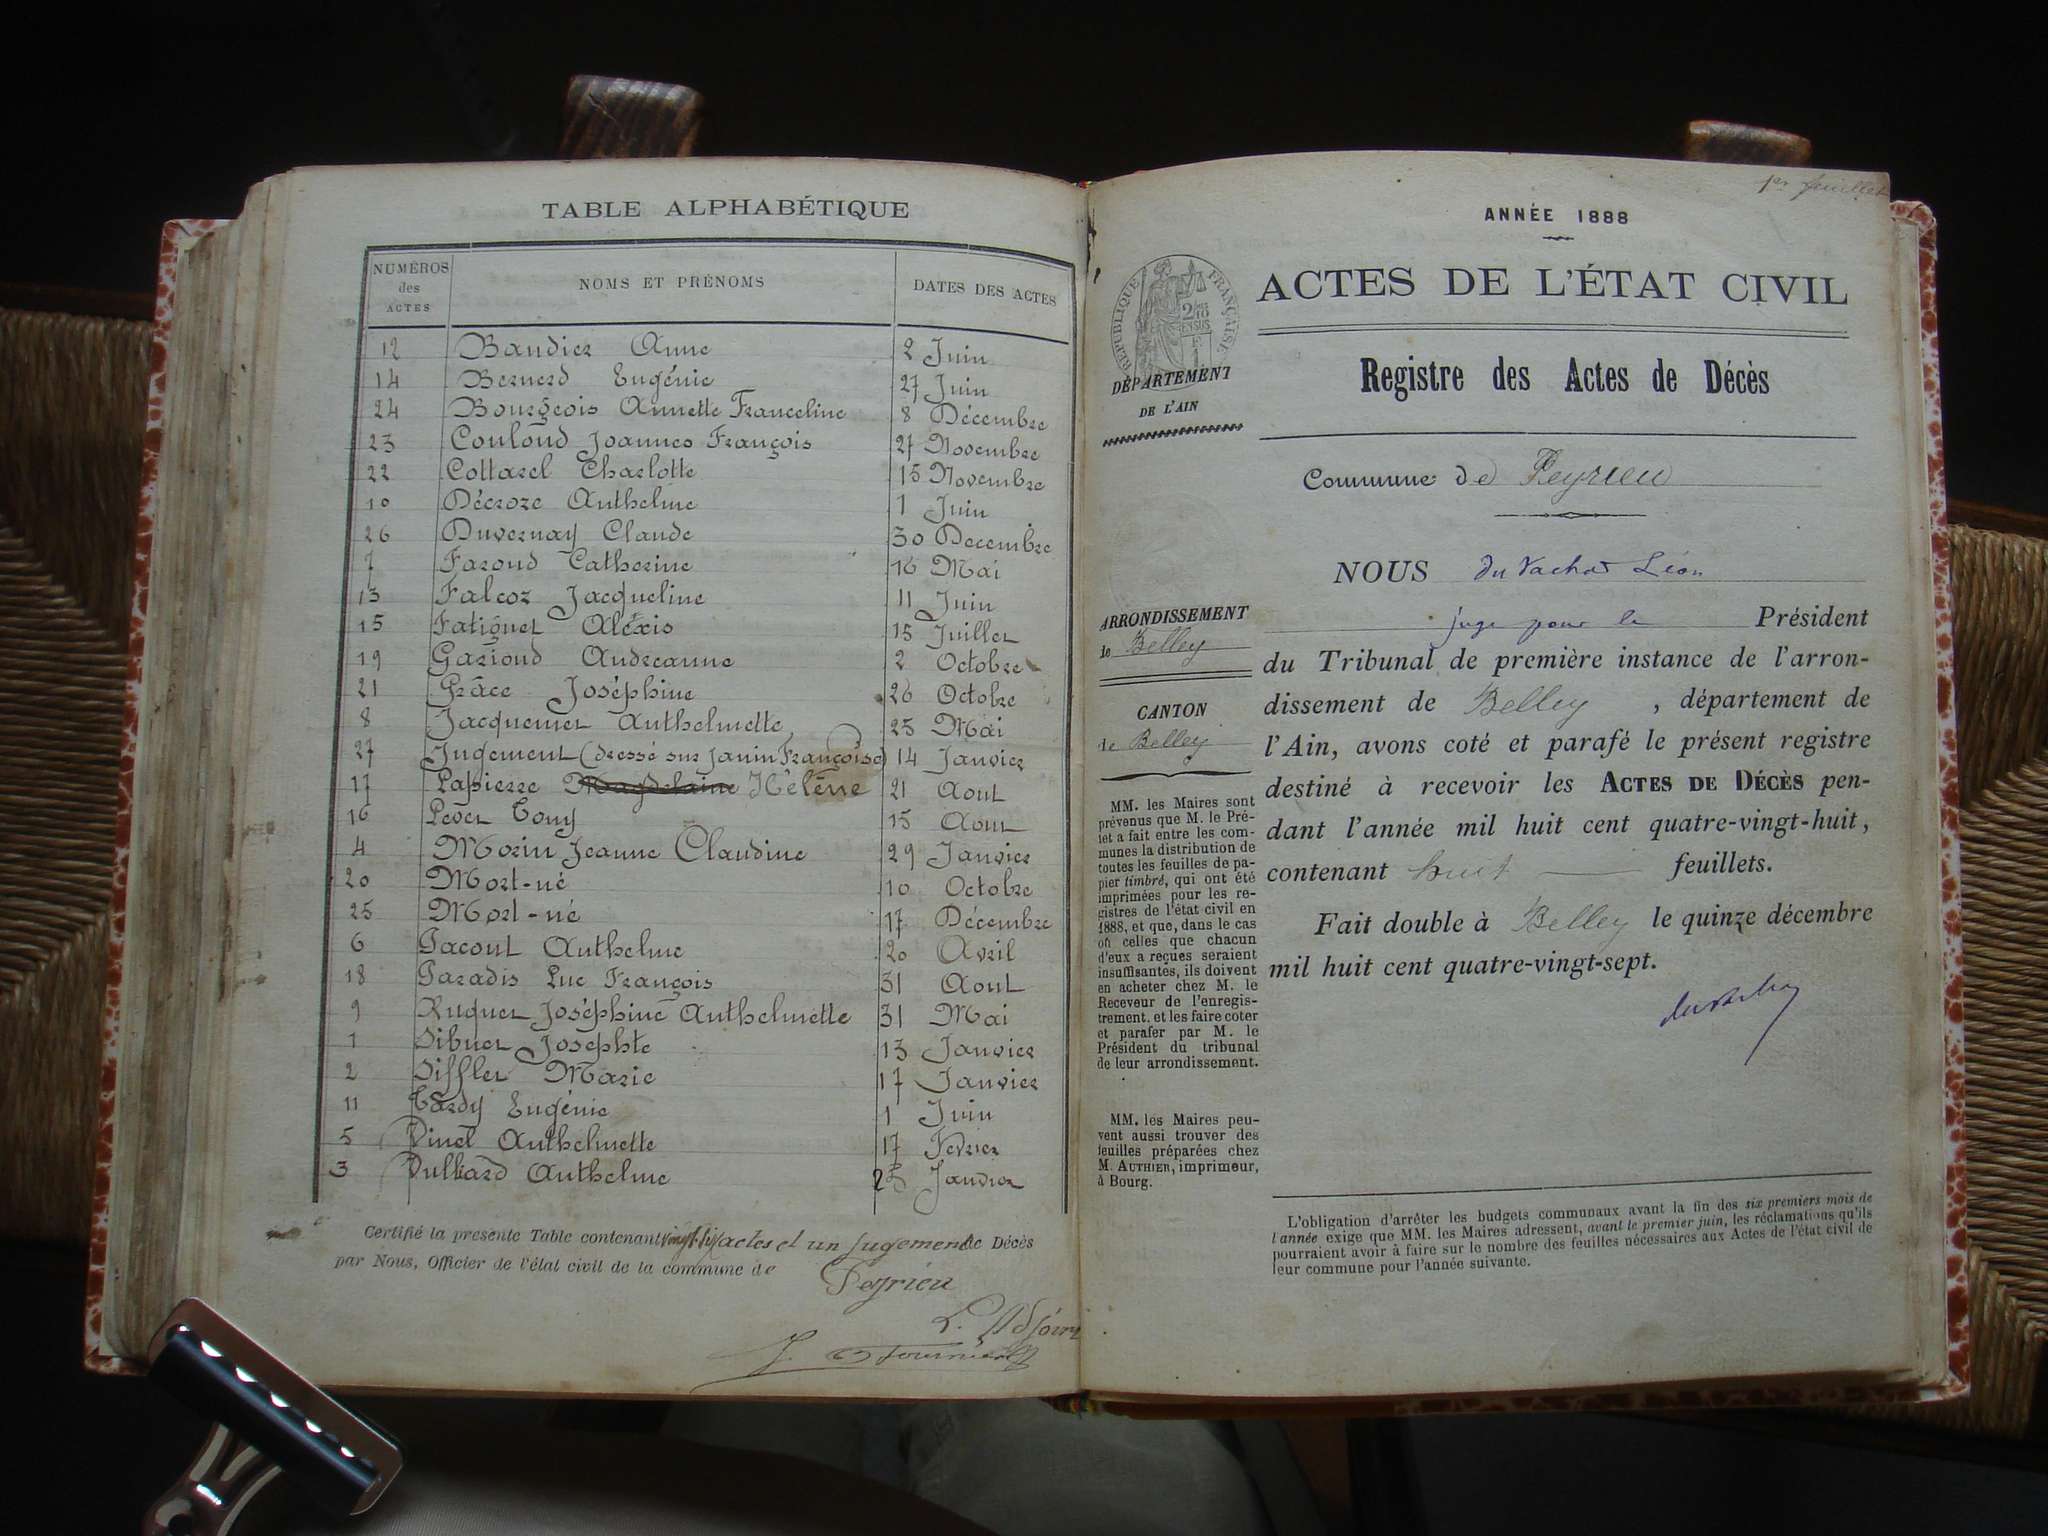 TABLE ALPHABÉTIQUE
NUMÉROS des ACTES
NOMS ET PRÉNOMS
DATES DES ACTES
12 Baudier Anne 2 Juin
14 Bernerd Eugénie 27 Juin
24 Bourgeois Annette Franceline 8 Décembre
23 Coulond Joannes François 27 Novembre
22 Cottarel Charlotte 15 Novembre
10 Décroze Anthelme 1 Juin
26 Duvernay Claude 30 Decembre
7 Farond Catherine 16 Mai
13 Falcoz Jacqueline 11 Juin
15 Fatiguet Aléxis 15 Juillet
19 Gariond Andréanne 2 Octobre
21 Grâce Joséphine 26 Octobre
8 Jacquemet Anthelmette 25 Mai
27 Jugement (dressé sur Janin Françoise) 14 Janvier
17 Lapierre Magdelaine Hélène 21 Aout
16 Levet Tony 15 Aout
4 Morin Jeanne Claudine 29 Janvier
20 Mort-né 10 Octobre
25 Mort-né 17 Décembre
6 Pacout Anthelme 20 Avril
18 Paradis Luc François 31 Aout
9 Ruquet Joséphine Anthelmette 31 Mai
1 Sibuet Josephte 13 Janvier
2 Sifflet Marie 17 Janvier
11 Tardy Eugénie 1 Juin
5 Vinet Anthelmette 17 Fevrier
3 Vulliard Anthelme 25 Janvier
Certifié la présente Table contenant vingt-six actes et un jugement de Décès
par Nous, Officier de l'état civil de la commune de
Peyrieu
L. Adjoint
J. Fournier
1er feuillet
ANNÉE 1888
ACTES DE L'ÉTAT CIVIL
RÉPUBLIQUE FRANÇAISE
DÉPARTEMENT
DE L'AIN
Registre des Actes de Décès
Commune de Peyrieu
NOUS du Vachat Léon
juge pour le Président
du Tribunal de première instance de l'arron-
dissement de Belley, département de
l'Ain, avons coté et parafé le présent registre
destiné à recevoir les ACTES DE DÉCÈS pen-
dant l'année mil huit cent quatre-vingt-huit,
contenant huit feuillets.
Fait double à Belley le quinze décembre
mil huit cent quatre-vingt-sept.
ARRONDISSEMENT
de Belley
CANTON
de Belley
MM. les Maires sont
prévenus que M. le Pré-
fet a fait entre les com-
munes la distribution de
toutes les feuilles de pa-
pier timbré, qui ont été
imprimées pour les re-
gistres de l'état civil en
1888, et que, dans le cas
où celles que chacun
d'eux a reçues seraient
insuffisantes, ils doivent
en acheter chez M. le
Receveur de l'enregis-
trement. et les faire coter
et parafer par M. le
Président du tribunal
de leur arrondissement.
MM. les Maires peu-
vent aussi trouver des
feuilles préparées chez
M. AUTHIER, imprimeur,
à Bourg.
L'obligation d'arrêter les budgets communaux avant la fin des six premiers mois de
l'année exige que MM. les Maires adressent, avant le premier juin, les réclamations qu'ils
pourraient avoir à faire sur le nombre des feuilles nécessaires aux Actes de l'état civil de
leur commune pour l'année suivante.